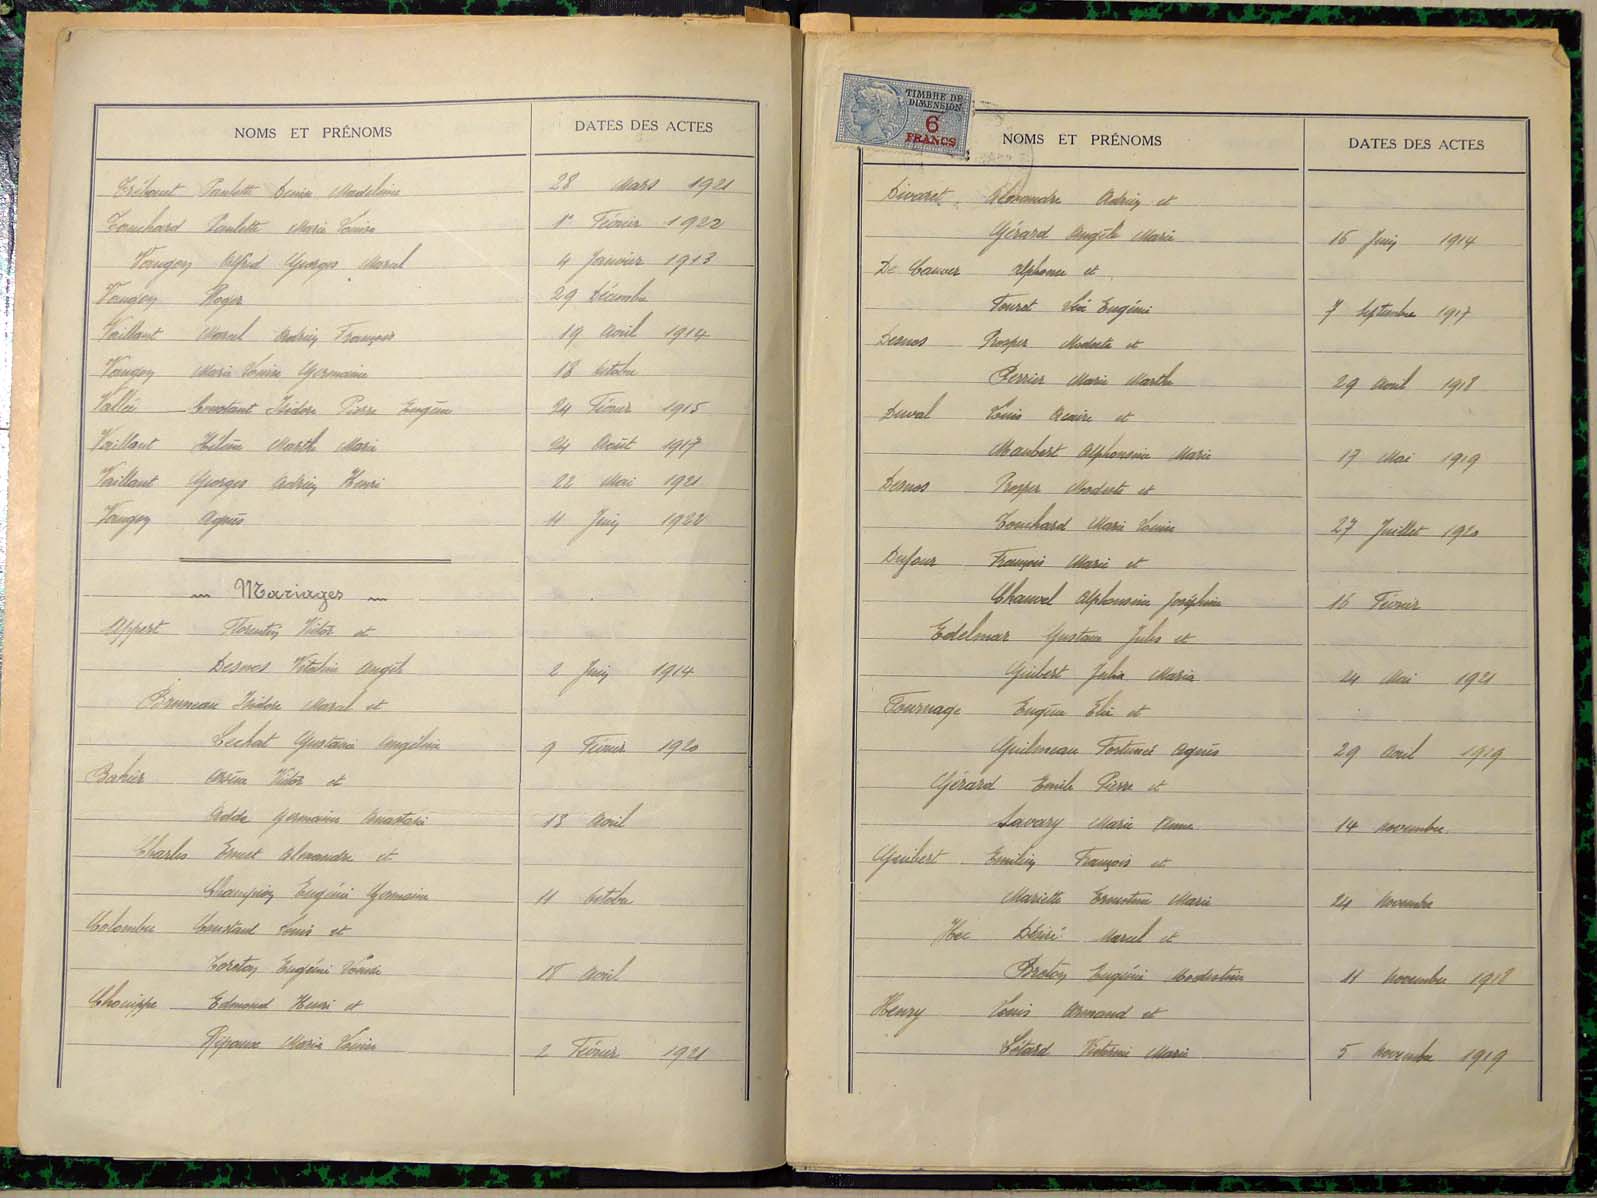 NOMS ET PRÉNOMS DATES DES ACTES
Trébouet Paulette Denise Madeleine 28 Mars 1921
Touchard Paulette Marie Louise 1er Février 1922
Vaugeon Alfred Georges Marcel 4 Janvier 1913
Vaugeon Roger 29 Décembre
Vaillant Marcel Adrien François 19 Avril 1914
Vaugeon Marie Louise Germaine 18 Octobre
Vallée Constant Isidore Pierre Eugène 24 Février 1915
Vaillant Hélène Marthe Marie 24 Août 1917
Vaillant Georges Adrien Henri 22 Mai 1921
Vaugeon Agnès 11 Juin 1922
Mariages
Appert Florentin Victor et
Desnos Vitaline Angèle 2 Juin 1914
Bruneau Isidore Marcel et
Lechat Gustavie Angéline 9 Février 1920
Bahier Arsène Victor et
Adde Germaine Anastasie 13 Avril
Charles Ernest Alexandre et
Champion Eugénie Germaine 11 Octobre
Colombu Constant Louis et
Toreton Eugénie Louise 18 Avril
Chouippe Edmond Henri et
Ripaux Maria Louise 2 Février 1921
TIMBRE DE
DIMENSION
6
FRANCS
NOMS ET PRÉNOMS DATES DES ACTES
Divaret Alexandre Adrien et
Gérard Angèle Marie 16 Juin 1914
De Cauwer Alphonse et
Fouret Eugénie 7 Septembre 1917
Desnos Prosper Modeste et
Perrier Marie Marthe 29 Avril 1918
Duval Louis Acaire et
Maubert Alphonsine Marie 17 Mai 1919
Desnos Prosper Modeste et
Touchard Marie Louise 27 Juillet 1920
Dufour François Marie et
Chauvel Alphonsine Joséphine 16 Février
Edelmar Gustave Jules et
Guibert Julia Maria 24 Mai 1921
Fournage Eugène Elie et
Guilmeau Fortunée Agnès 29 Avril 1919
Gérard Emile Pierre et
Savary Marie Anne 14 Novembre
Guibert Emilien François et
Mariette Ernestine Marie 24 Novembre
Hec Désiré Marcel et
Breton Eugénie Modestine 11 Novembre 1918
Henry Louis Armand et
Létard Victorine Marie 5 Novembre 1919